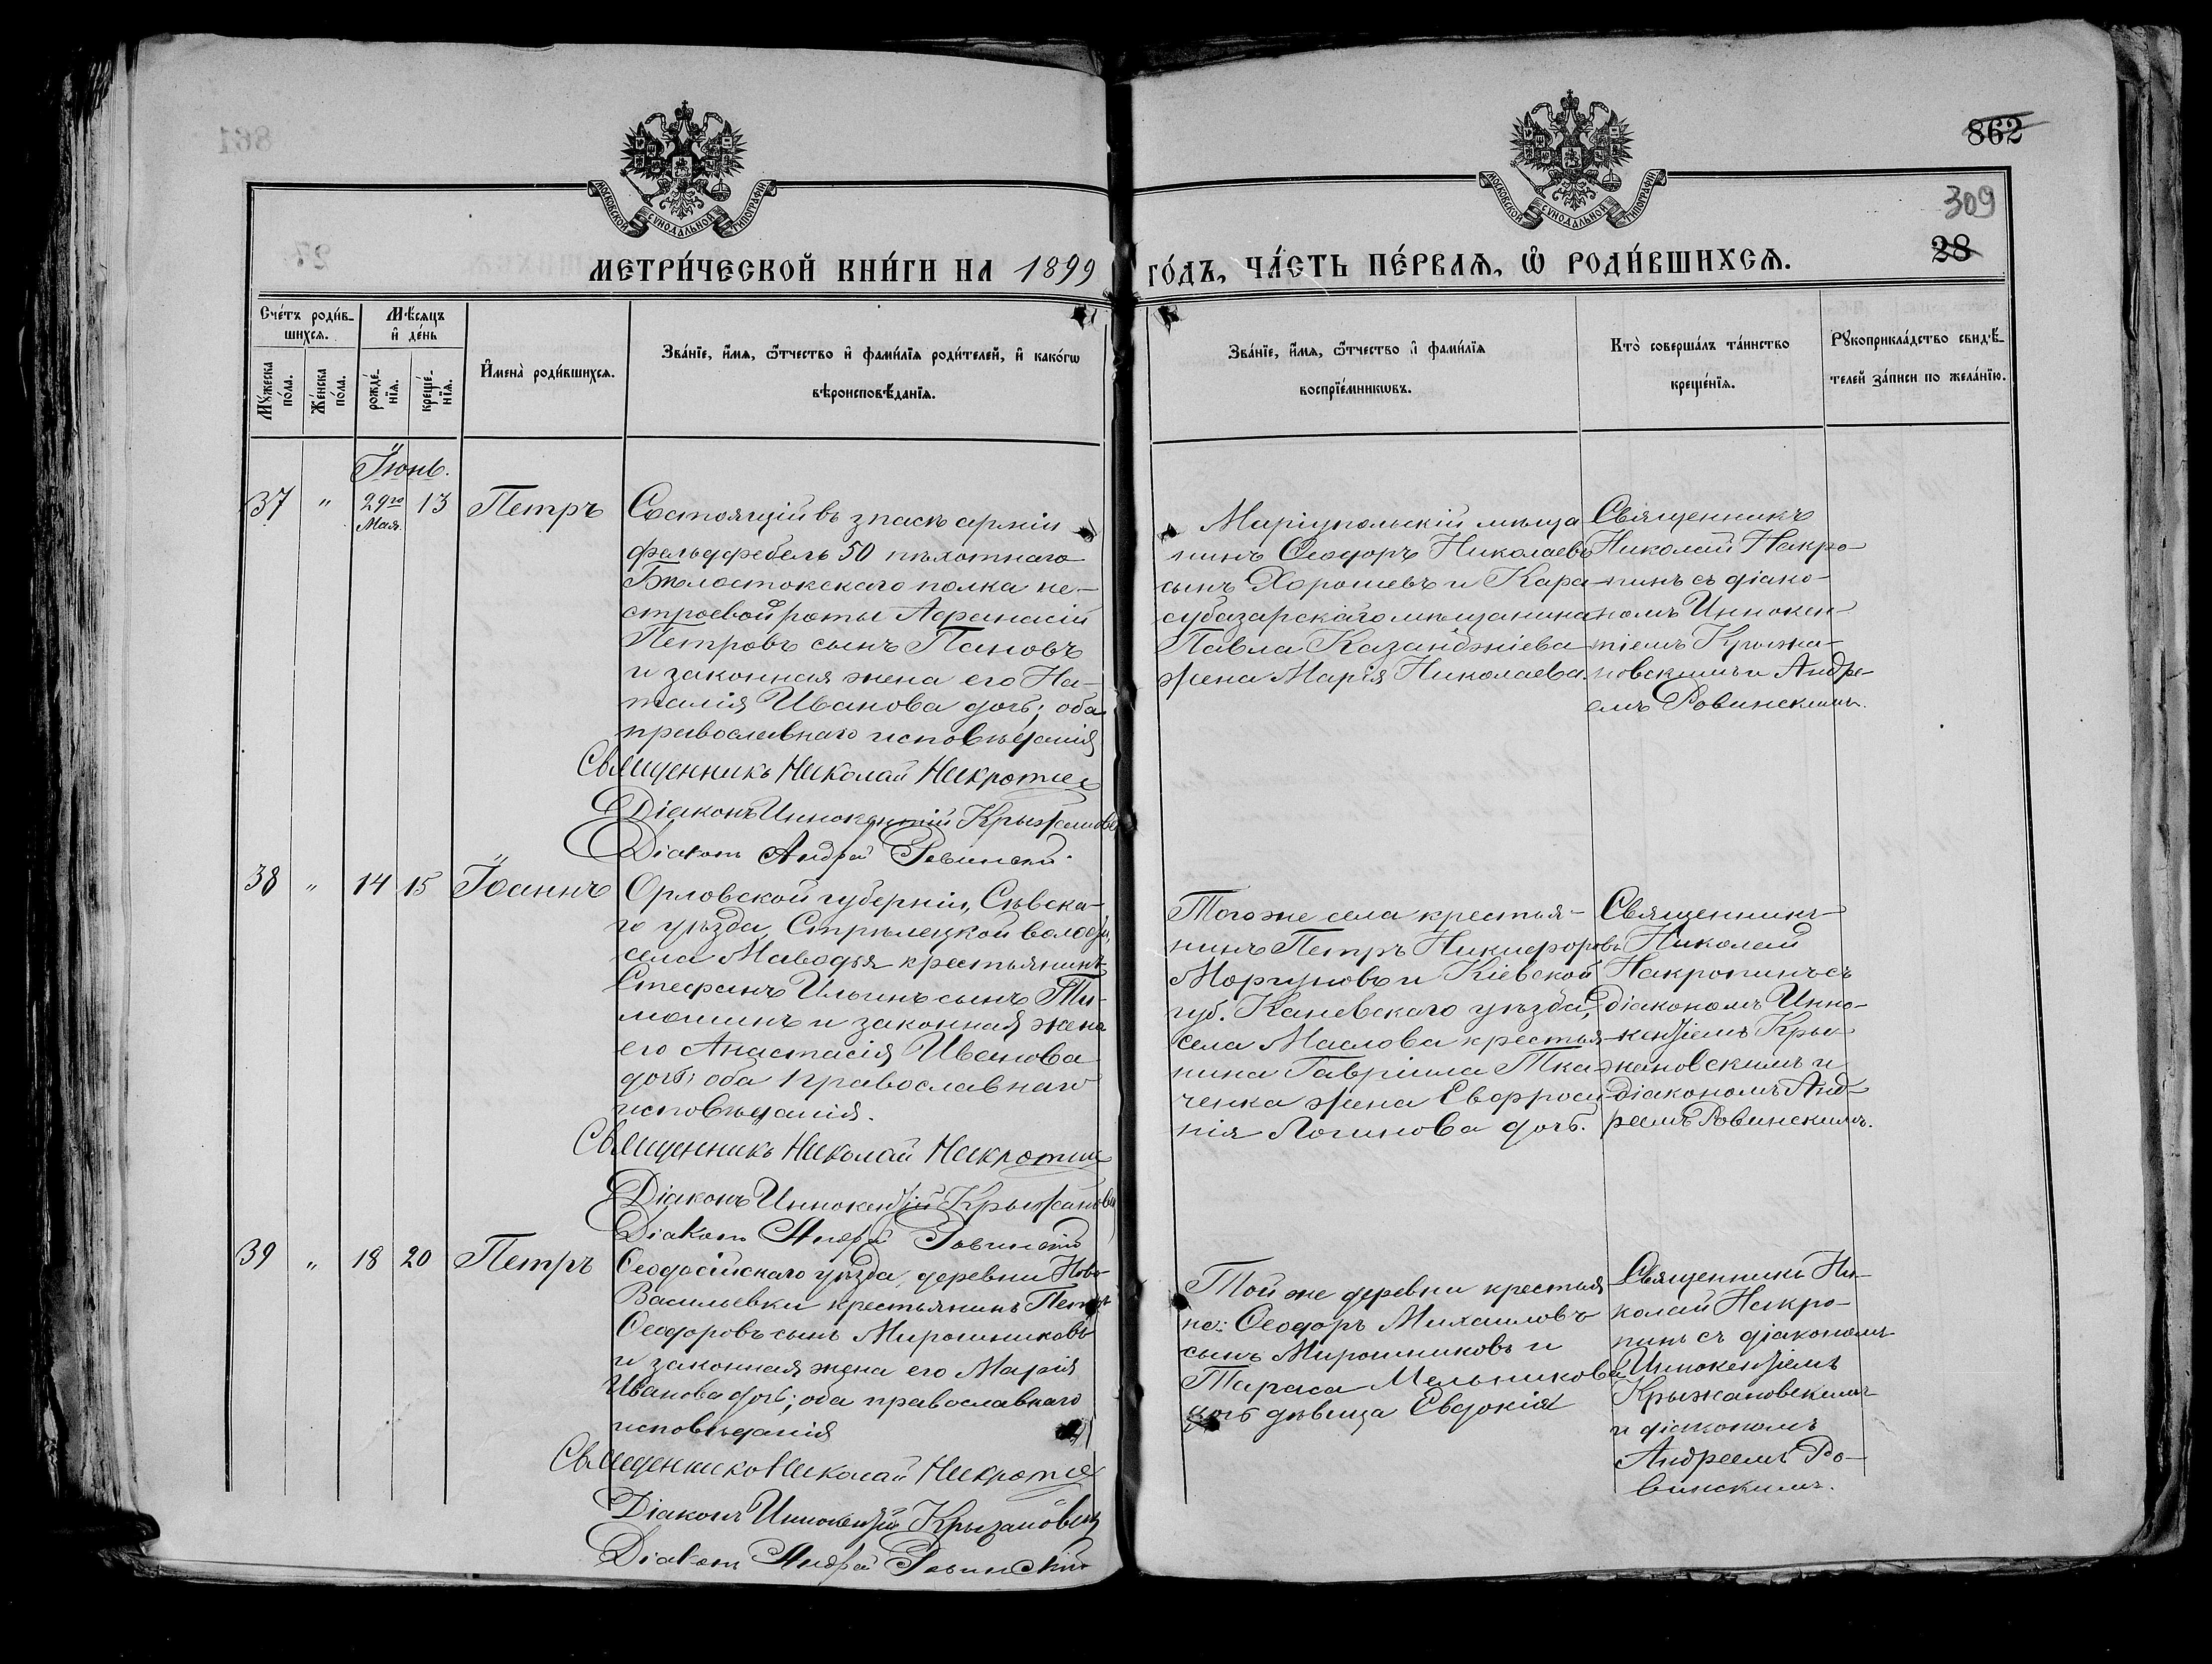 862
309
28
МОСКОВСКОЙ СѴНОДАЛЬНОЙ ТИПОГРАФІИ
МОСКОВСКОЙ СѴНОДАЛЬНОЙ ТИПОГРАФІИ
МЕТРИ́ЧЕСКОЙ КНИ́ГИ НА 1899 ГО́ДЪ, ЧА́СТЬ ПЕ́РВАѦ, Ѡ҆ РОДИ́ВШИХСѦ.
Сче́тъ роди́в-
шихсѧ.
Мꙋ́жеска по́ла.
Же́нска по́ла.
Мѣ́сѧцъ
и҆ де́нь
рожде́-
нїѧ.
креще́-
нїѧ.
И҆мена̀ роди́вшихсѧ.
Зва́нїе, и҆́мѧ, ѻ҆́тчество и҆ фами́лїѧ роди́телей, и҆ како́гѡ
вѣроисповѣ́данїѧ.
Зва́нїе, и҆́мѧ, ѻ҆́тчество и҆ фами́лїѧ
воспрїе́мникѡвъ.
Кто̀ соверша́лъ та́инство
креще́нїѧ.
Рꙋкоприкла́дство свидѣ́-
телей за́писи по жела́нїю.
Іюнь.
37 " 29го Мая 13 Петръ
Состоящій въ зпасѣ арміи
фельдфебель 50 пѣхотнаго
Бѣлостокскаго полка не-
строевой роты Афанасій
Петровъ сынъ Пановъ
и законная жена его На-
талія Иванова дочь; оба
православнаго исповѣданія
Священникъ Николай Накропин
Діаконъ Иннокентій Крыжановс
Діаконъ Андрей Ровинскій
Маріупольскій мѣща
нинъ Ѳеодоръ Николаевъ
сынъ Хорошевъ и Кара-
субазарскаго мѣщанина
Павла Казанджіева
жена Марія Николаева.
Священникъ
Николай Накро-
пинъ съ діако-
номъ Иннокен-
тіемъ Крыжа-
новскимъ и Андре-
емъ Ровинскимъ.
38 " 14 15 Іоаннъ
Орловской губерніи, Сѣвска-
го уѣзда, Стрѣлецкой волости,
села Маводья крестьянинъ
Стефанъ Ильинъ сынъ Ти-
мошинъ и законная жена
его Анастасія Иванова
дочь; оба православнаго
исповѣданія.
Священникъ Николай Накропин
Діаконъ Иннокентій Крыжановс
Діаконъ Андрей Ровинскій
Того же села крестья-
нинъ Петръ Никифоровъ
Моргуновъ и Кіевской
губ. Каневскаго уѣзда,
села Маслова крестья-
нина Гавріила Тка-
ченка жена Евфроси-
нія Логинова дочь.
Священникъ
Николай
Накропинъ съ
діакономъ Инно-
кентіемъ Кры-
жановскимъ и
діакономъ Анд-
реемъ Ровинскимъ.
39 " 18 20 Петръ
Ѳеодосійскаго уѣзда, деревни Ново-
Васильевки крестьянинъ Петръ
Ѳеодоровъ сынъ Мирошниковъ
и законная жена его Марія
Иванова дочь; оба православнаго
исповѣданія
Священникъ Николай Накропин
Діаконъ Иннокентій Крыжановск
Діаконъ Андрей Ровинскій
Той же деревни крестья
не: Ѳеодоръ Михаиловъ
сынъ Мирошниковъ и
Тараса Мельникова
дочь дѣвица Евдокія
Священникъ Ни-
колай Накро-
пинъ съ діакономъ
Иннокентіемъ
Крыжановскимъ
и діакономъ
Андреемъ Ро-
винскимъ.